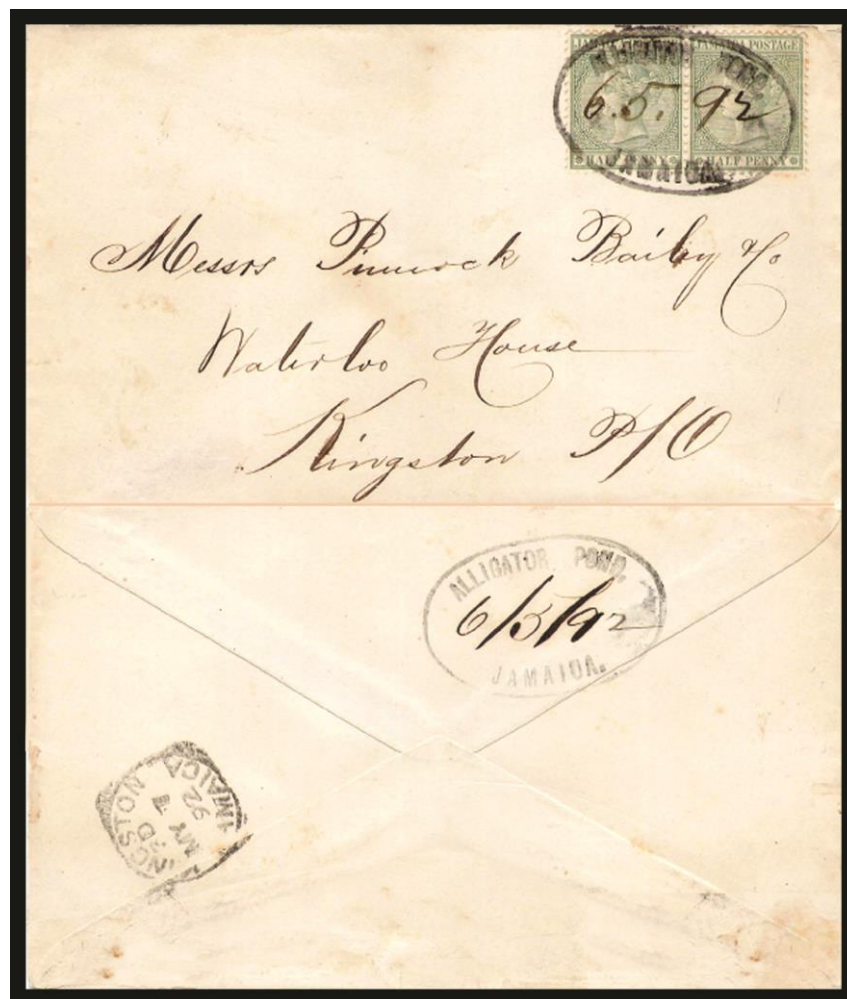 JAMAICA POSTAGE JAMAICA POSTAGE
6.5.92
HALF PENNY HALF PENNY
JAMAICA.
Messrs Pinnock Baily & Co
Waterloo House
Kingston P/O
ALLIGATOR POND.
6/5/92
JAMAICA.
NGSTON
MY 7
92
JAMAICA